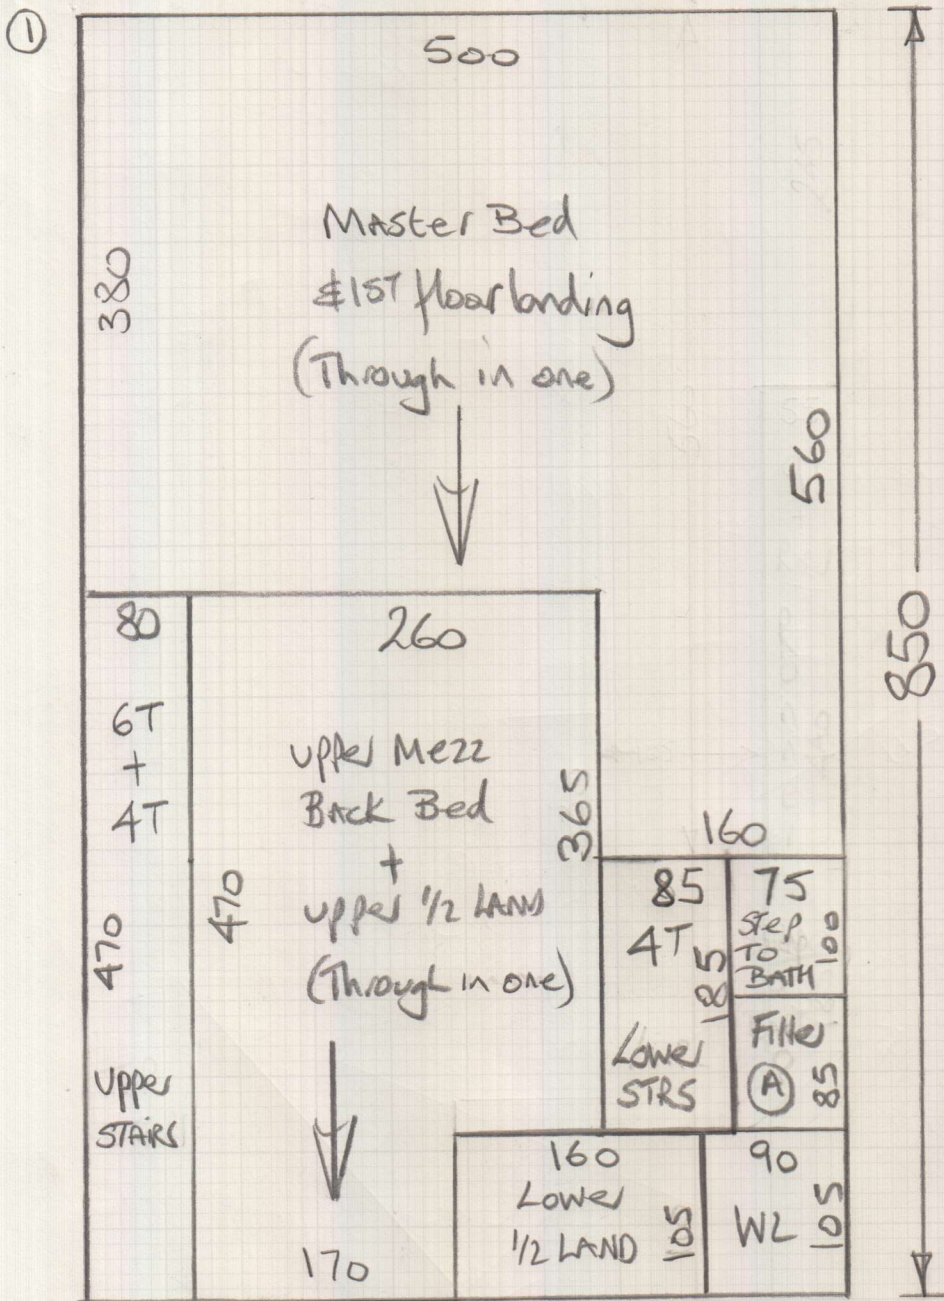 ①
500
Master Bed
& 1ST floor landing
(Through in one)
380
560
850
80
6T
+
4T
470
Upper
STAIRS
260
Upper Mezz
Back Bed
+
Upper 1/2 LAND
(Through in one)
470
365
170
160
85
4T
185
Lower
STRS
75
Step
TO
BATH
100
Filler
Ⓐ
85
160
Lower
1/2 LAND
105
90
WL
105